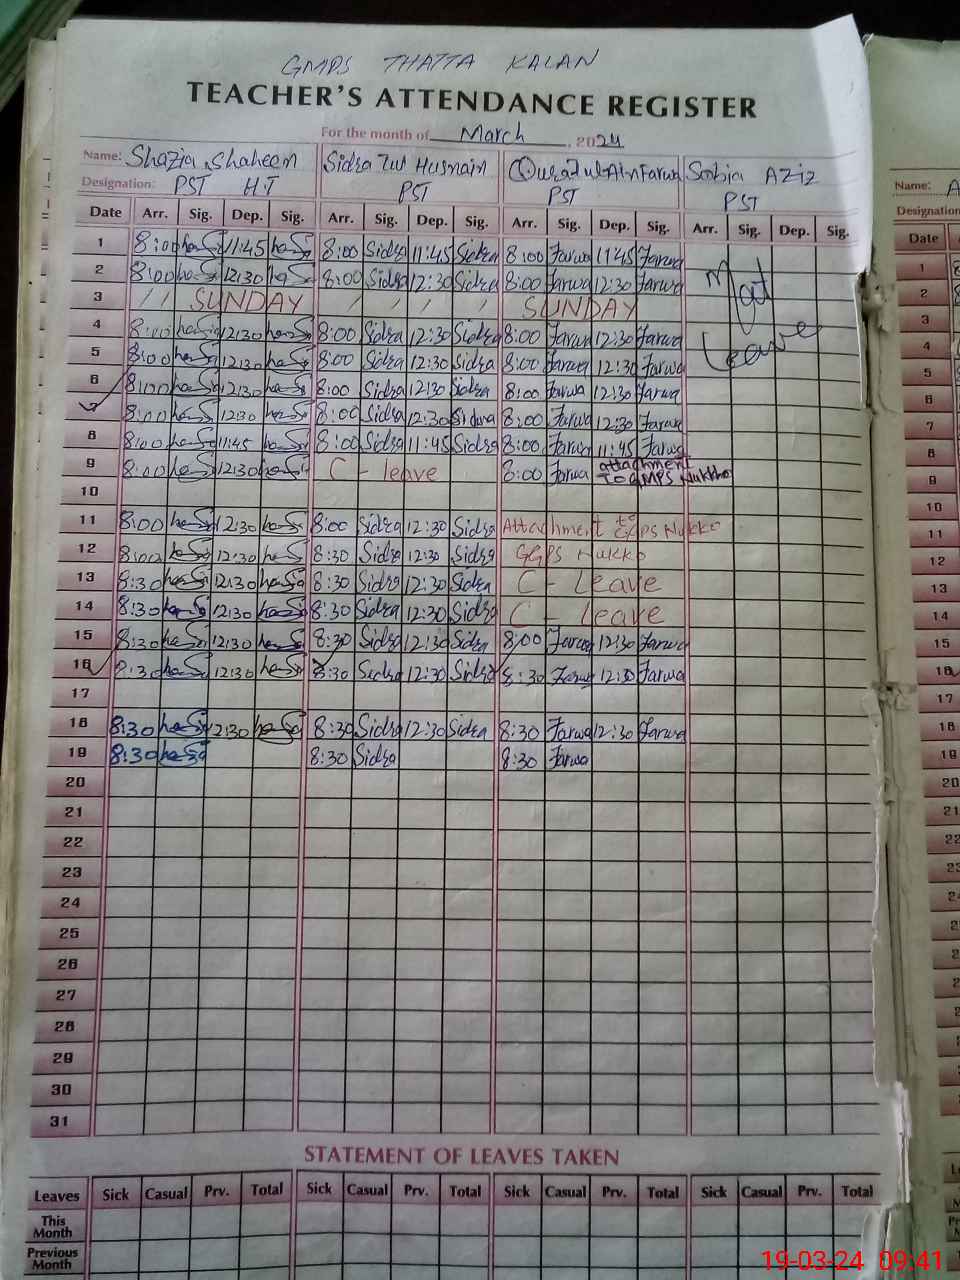 GMPS THATTA KALAN
TEACHER'S ATTENDANCE REGISTER
For the month of March, 2024
Name: Shazia Shaheen Sidra Tul Husnain QuratulAinFarwa Sobia AZiz
Designation: PST H.T PST PST PST
Date Arr. Sig. Dep. Sig. Arr. Sig. Dep. Sig. Arr. Sig. Dep. Sig. Arr. Sig. Dep. Sig.
1 8:00 11:45 8:00 Sidra 11:45 Sidra 8:00 Farwa 11:45 Farwa
2 8:00 12:30 8:00 Sidra 12:30 Sidra 8:00 Farwa 12:30 Farwa
3 / / SUNDAY / / / / SUNDAY
4 8:00 12:30 8:00 Sidra 12:30 Sidra 8:00 Farwa 12:30 Farwa
5 8:00 12:30 8:00 Sidra 12:30 Sidra 8:00 Farwa 12:30 Farwa
6 8:00 12:30 8:00 Sidra 12:30 Sidra 8:00 Farwa 12:30 Farwa
7 8:00 12:30 8:00 Sidra 12:30 Sidra 8:00 Farwa 12:30 Farwa
8 8:00 11:45 8:00 Sidra 11:45 Sidra 8:00 Farwa 11:45 Farwa
Mat
Leave
9 8:00 12:30 C - leave 8:00 Farwa attachment
To GMPS Nukkho
10
11 8:00 12:30 8:00 Sidra 12:30 Sidra Attachment to GGPS Nukko
12 8:00 12:30 8:30 Sidra 12:30 Sidra GGPS Nukko
13 8:30 12:30 8:30 Sidra 12:30 Sidra C - Leave
14 8:30 12:30 8:30 Sidra 12:30 Sidra C - Leave
15 8:30 12:30 8:30 Sidra 12:30 Sidra 8:00 Farwa 12:30 Farwa
16 8:30 12:30 8:30 Sidra 12:30 Sidra 8:30 Farwa 12:30 Farwa
17
18 8:30 12:30 8:30 Sidra 12:30 Sidra 8:30 Farwa 12:30 Farwa
19 8:30 8:30 Sidra 8:30 Farwa
20
21
22
23
24
25
26
27
28
29
30
31
STATEMENT OF LEAVES TAKEN
Leaves Sick Casual Prv. Total Sick Casual Prv. Total Sick Casual Prv. Total Sick Casual Prv. Total
This
Month
Previous
Month
Name: A
Designation
Date
1
2
3
4
5
6
7
8
9
10
11
12
13
14
15
16
17
18
19
20
19-03-24 09:41